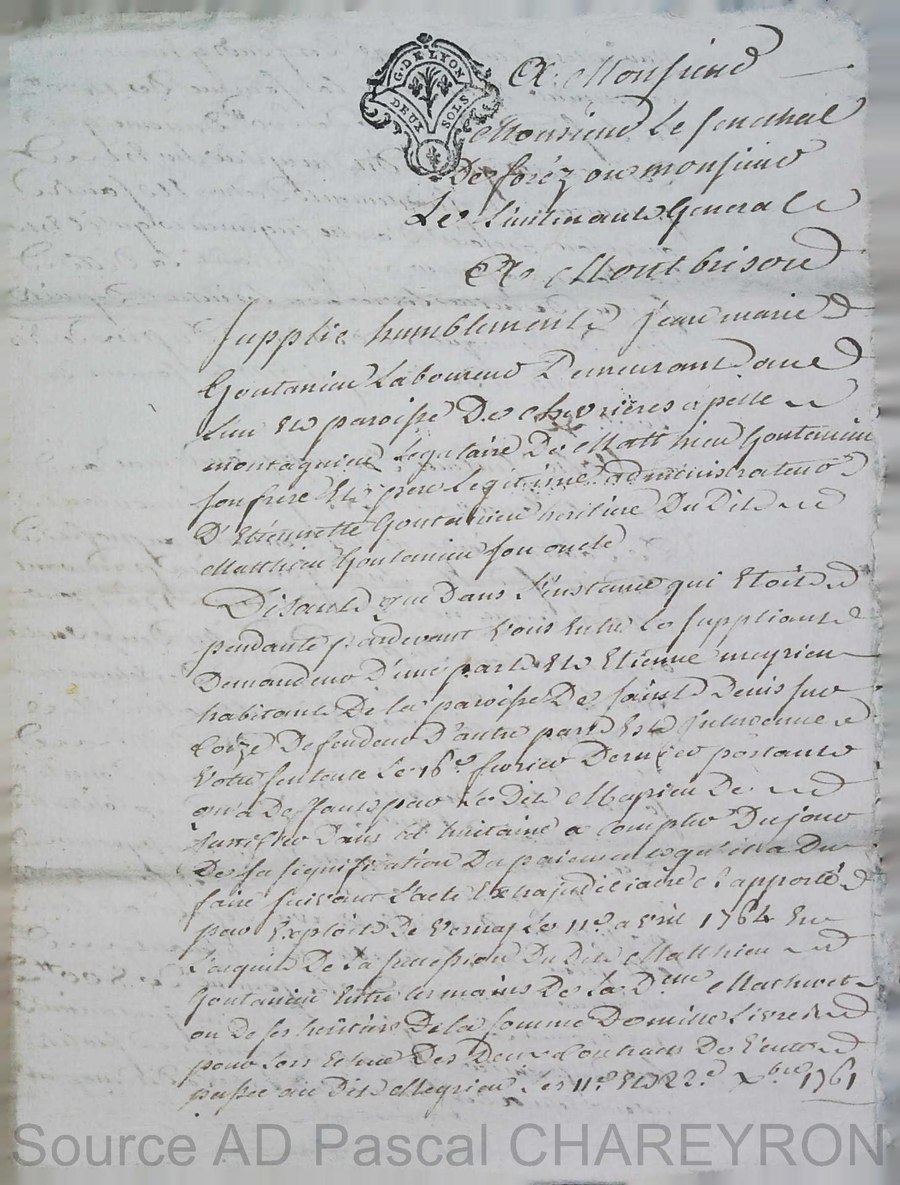 G. DE LYON
DEUX SOLS
A Monsieur
Monsieur Le senechal
De foréz ou monsieur
Le Lieutenant General
A Montbrison
Supplie humblement jean marie
Goutanieu Laboureur Demeurant au
Lieu et paroisse De chevrières apellé
montagnieu Legataire De Matthieu Goutanieu
son frere et pere Legitime administrateur
D'Etiennette Goutanieu heritiere Du Dit
Matthieu Goutanieu son oncle
Disant que Dans L'instance qui Etoit
pendante pardevant Vous Entre Le Suppliant
Demandeur D'une part Et Etienne meyrieu
habitant De la paroisse De saint Denis sur
Coize Defendeur D'autre part Est Intervenue
Votre sentence Le 16e fevrier Dernier portant
qu'a Deffaut par Le Dit Meyrieu De
satisfaire Dans la huitaine a compter Du jour
De la signification Du paiement qu'il a Du
faire suivant L'acte Extrajudiciaire raporté
par Exploit De Vernay Le 11e avril 1764 En
L'acquit De la succession Du Dit Matthieu
Goutanieu Entre les mains De La Dme Mathevet
ou De ses heritiers De la somme De mille Livres
pour Lors Echue Des Deux Contrats De Vente
passée au Dit Meyrieu Les 11e Et 22e xbre 1761
Source AD Pascal CHAREYRON